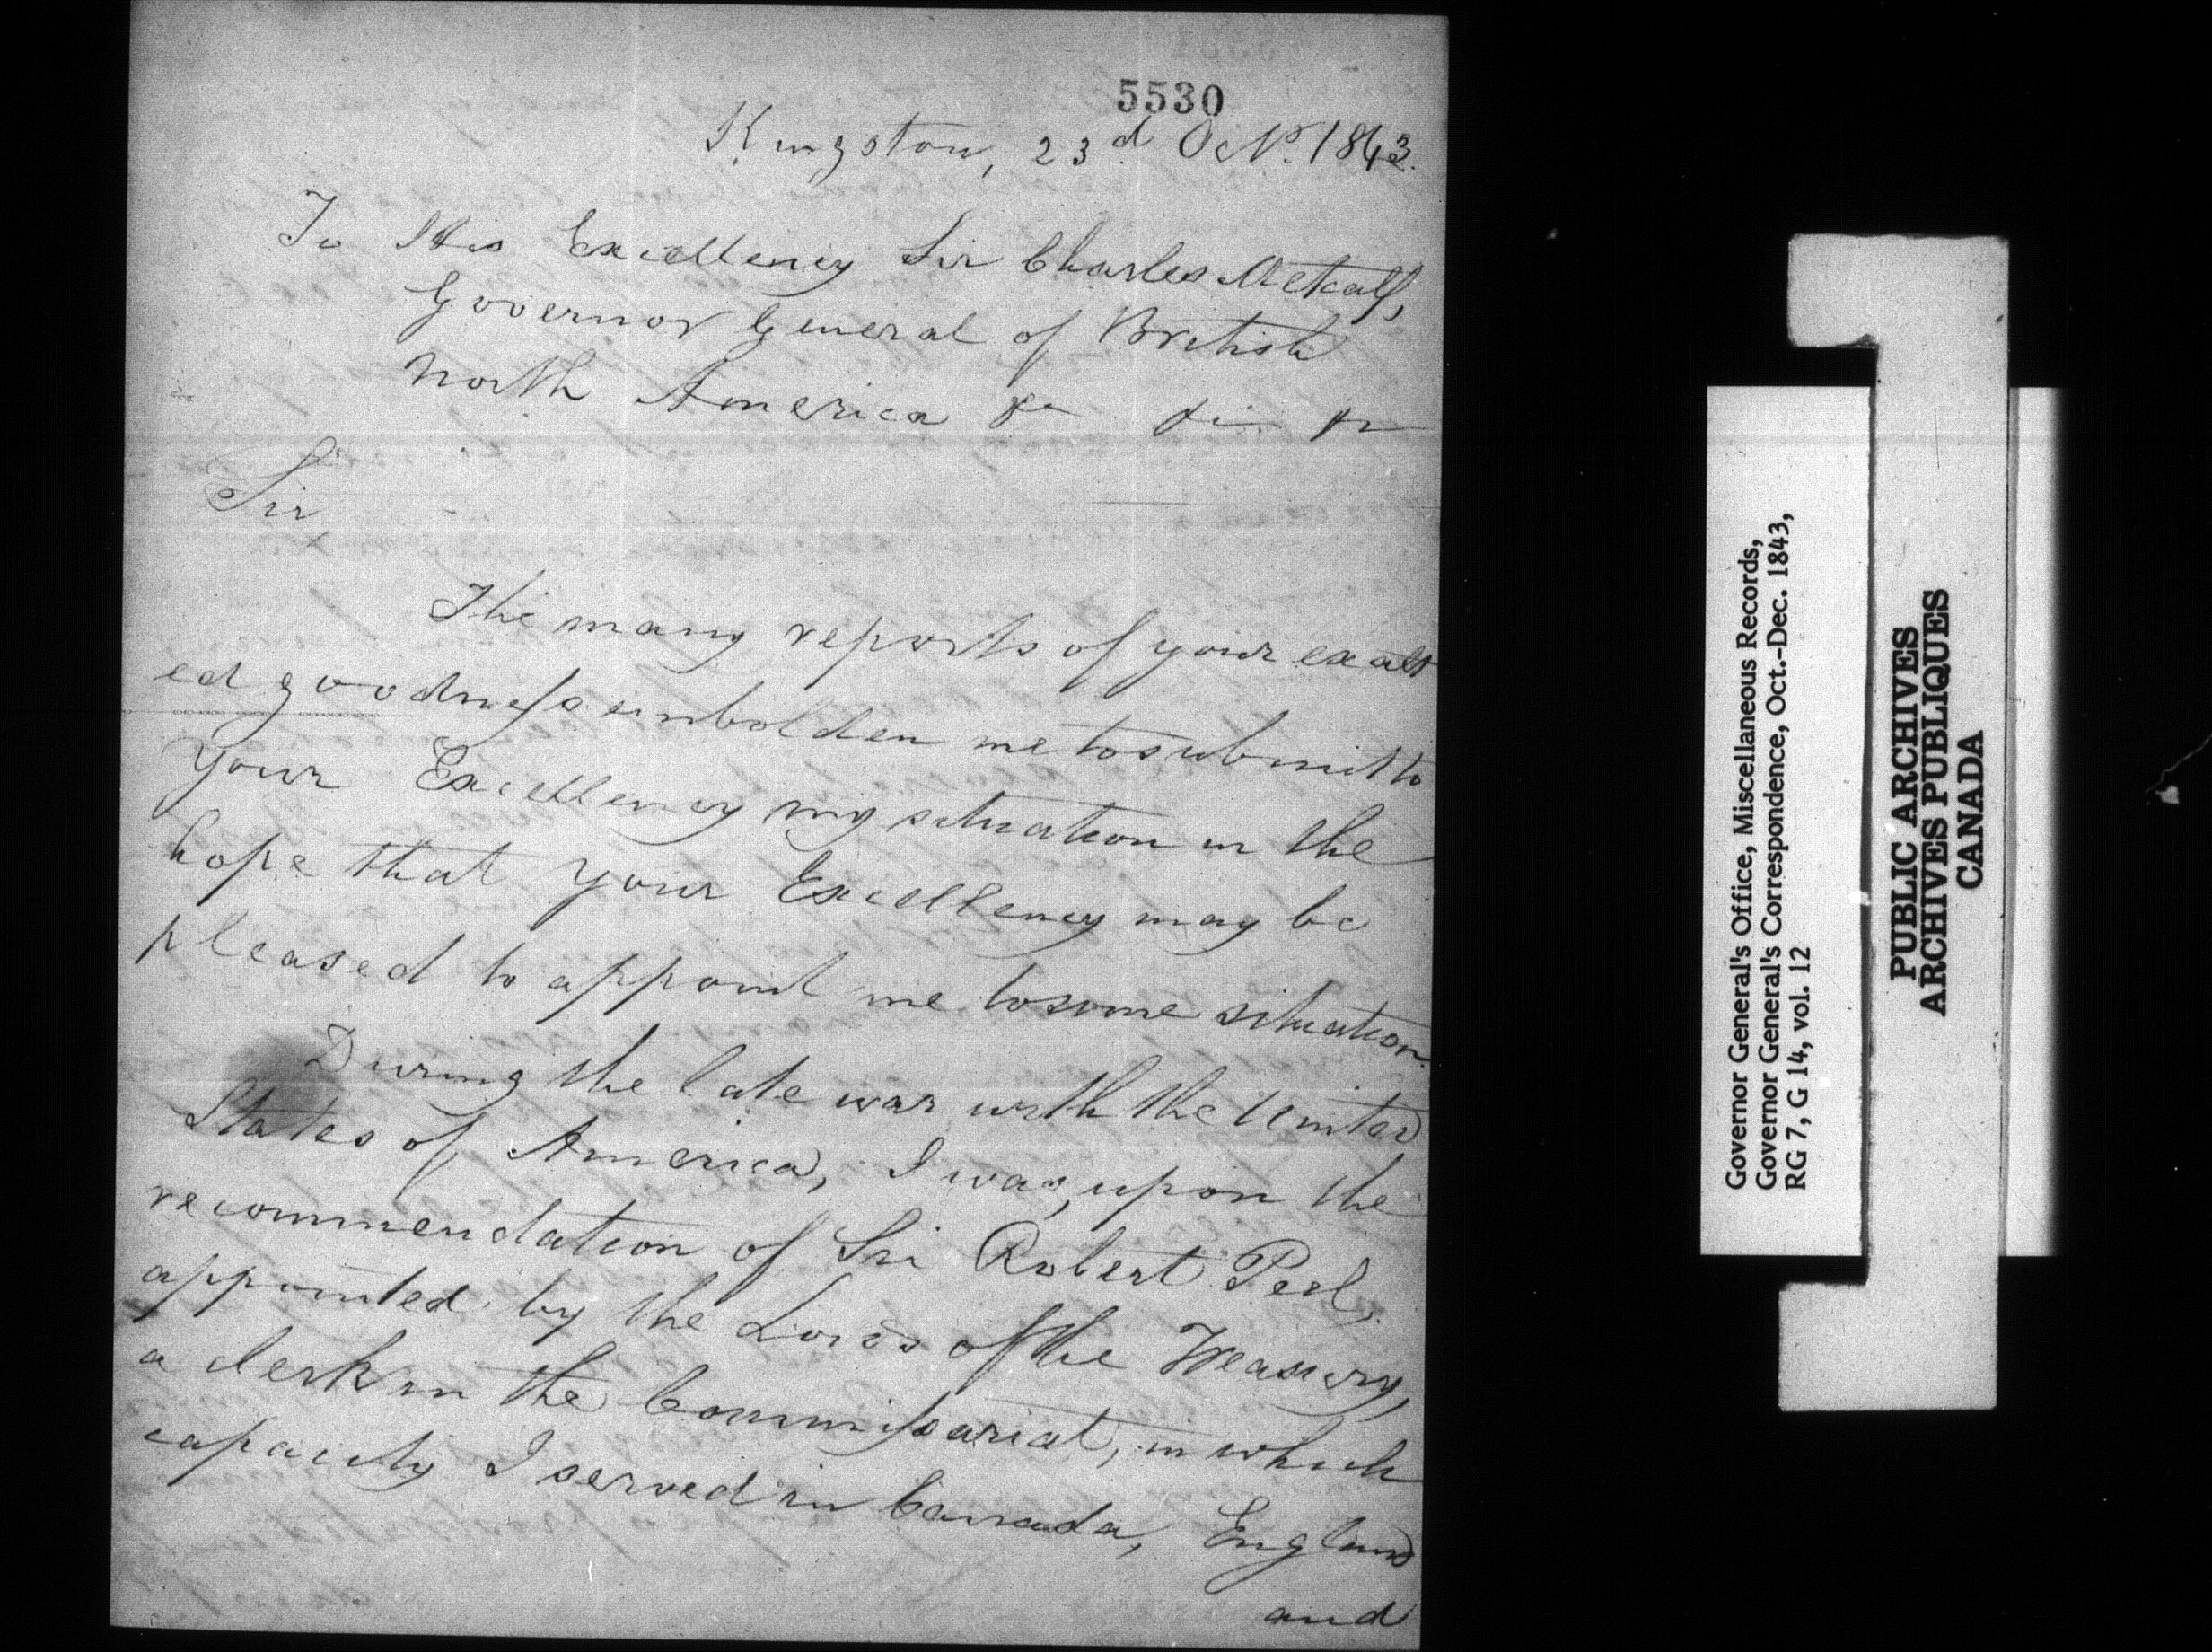 5530
Kingston, 23d Octr. 1843.
To His Excellency Sir Charles Metcalf,
Governor General of British
North America &c &c &c
Sir
The many reports of your exalt
ed goodness embolden me to submit to
Your Excellency my situation in the
hope that Your Excellency may be
pleased to appoint me to some situation.
During the late war with the United
States of America, I was, upon the
recommendation of Sir Robert Peel,
appointed by the Lords of the Treasury,
a clerk in the Commissariat, in which
capacity I served in Canada, England
and
Governor General's Office, Miscellaneous Records,
Governor General's Correspondence, Oct.-Dec. 1843,
RG 7, G 14, vol. 12
PUBLIC ARCHIVES
ARCHIVES PUBLIQUES
CANADA